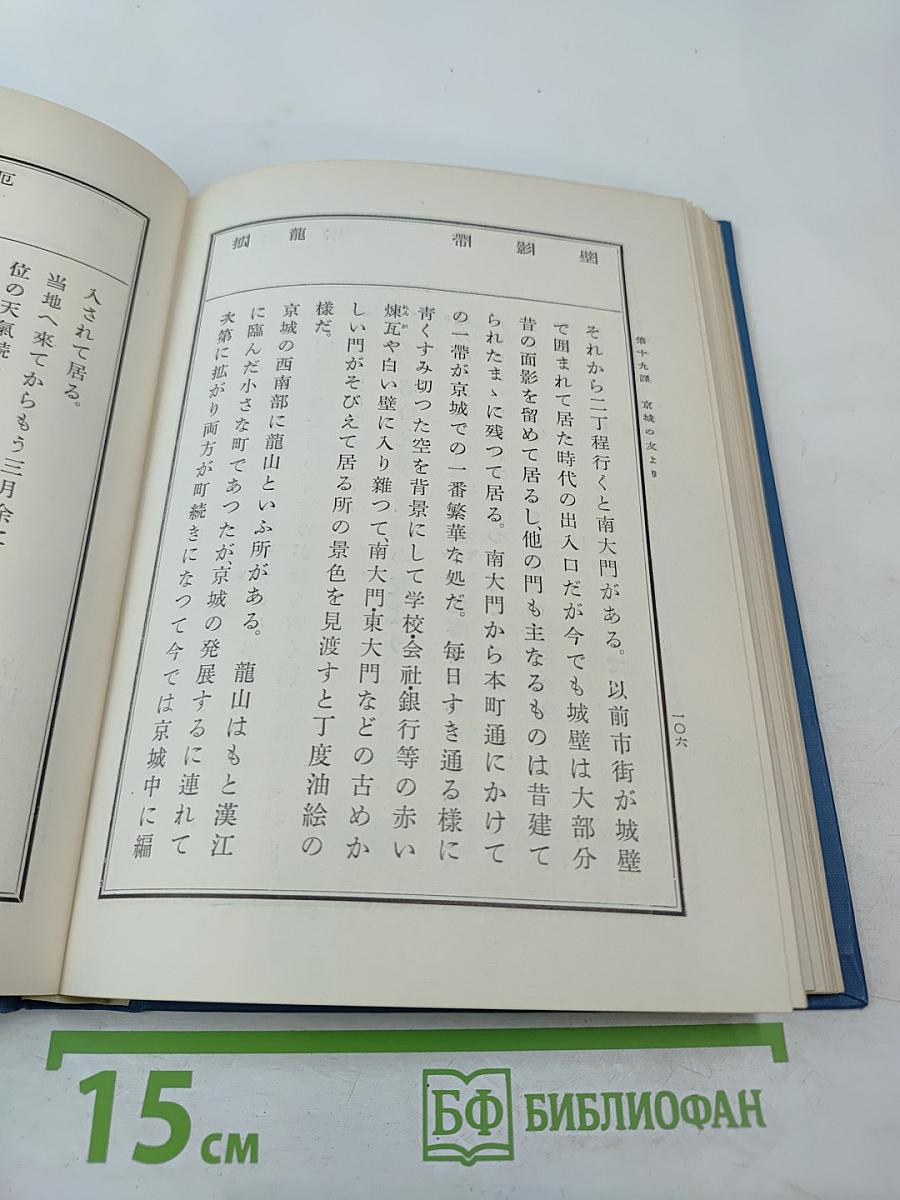 第十九課 京城の友より
一〇六
壁
影
帶
龍
拡
それから二丁程行くと南大門がある。以前市街が城壁
で囲まれて居た時代の出入口だが今でも城壁は大部分
昔の面影を留めて居るし、他の門も主なるものは昔建て
られたまゝに残つて居る。南大門から本町通にかけて
の一帶が京城での一番繁華な処だ。每日すき通る様に
靑くすみ切つた空を背景にして学校・会社・銀行等の赤い
煉瓦や白い壁に入り雜つて、南大門・東大門などの古めか
しい門がそびえて居る所の景色を見渡すと丁度油絵の
様だ。
京城の西南部に龍山といふ所がある。龍山はもと漢江
に臨んだ小さな町であつたが、京城の発展するに連れて
次第に拡がり両方が町続きになつて今では京城中に編
厄
入されて居る。
当地へ來てからもう三月余
位の天氣続
15 см
БФ БИБЛИОФАН